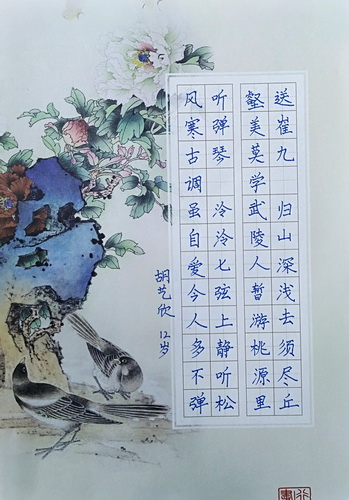 送崔九 归山深浅去须尽丘
壑美莫学武陵人暂游桃源里
听弹琴 泠泠七弦上静听松
风寒古调虽自爱今人多不弹
胡艺欣 12岁